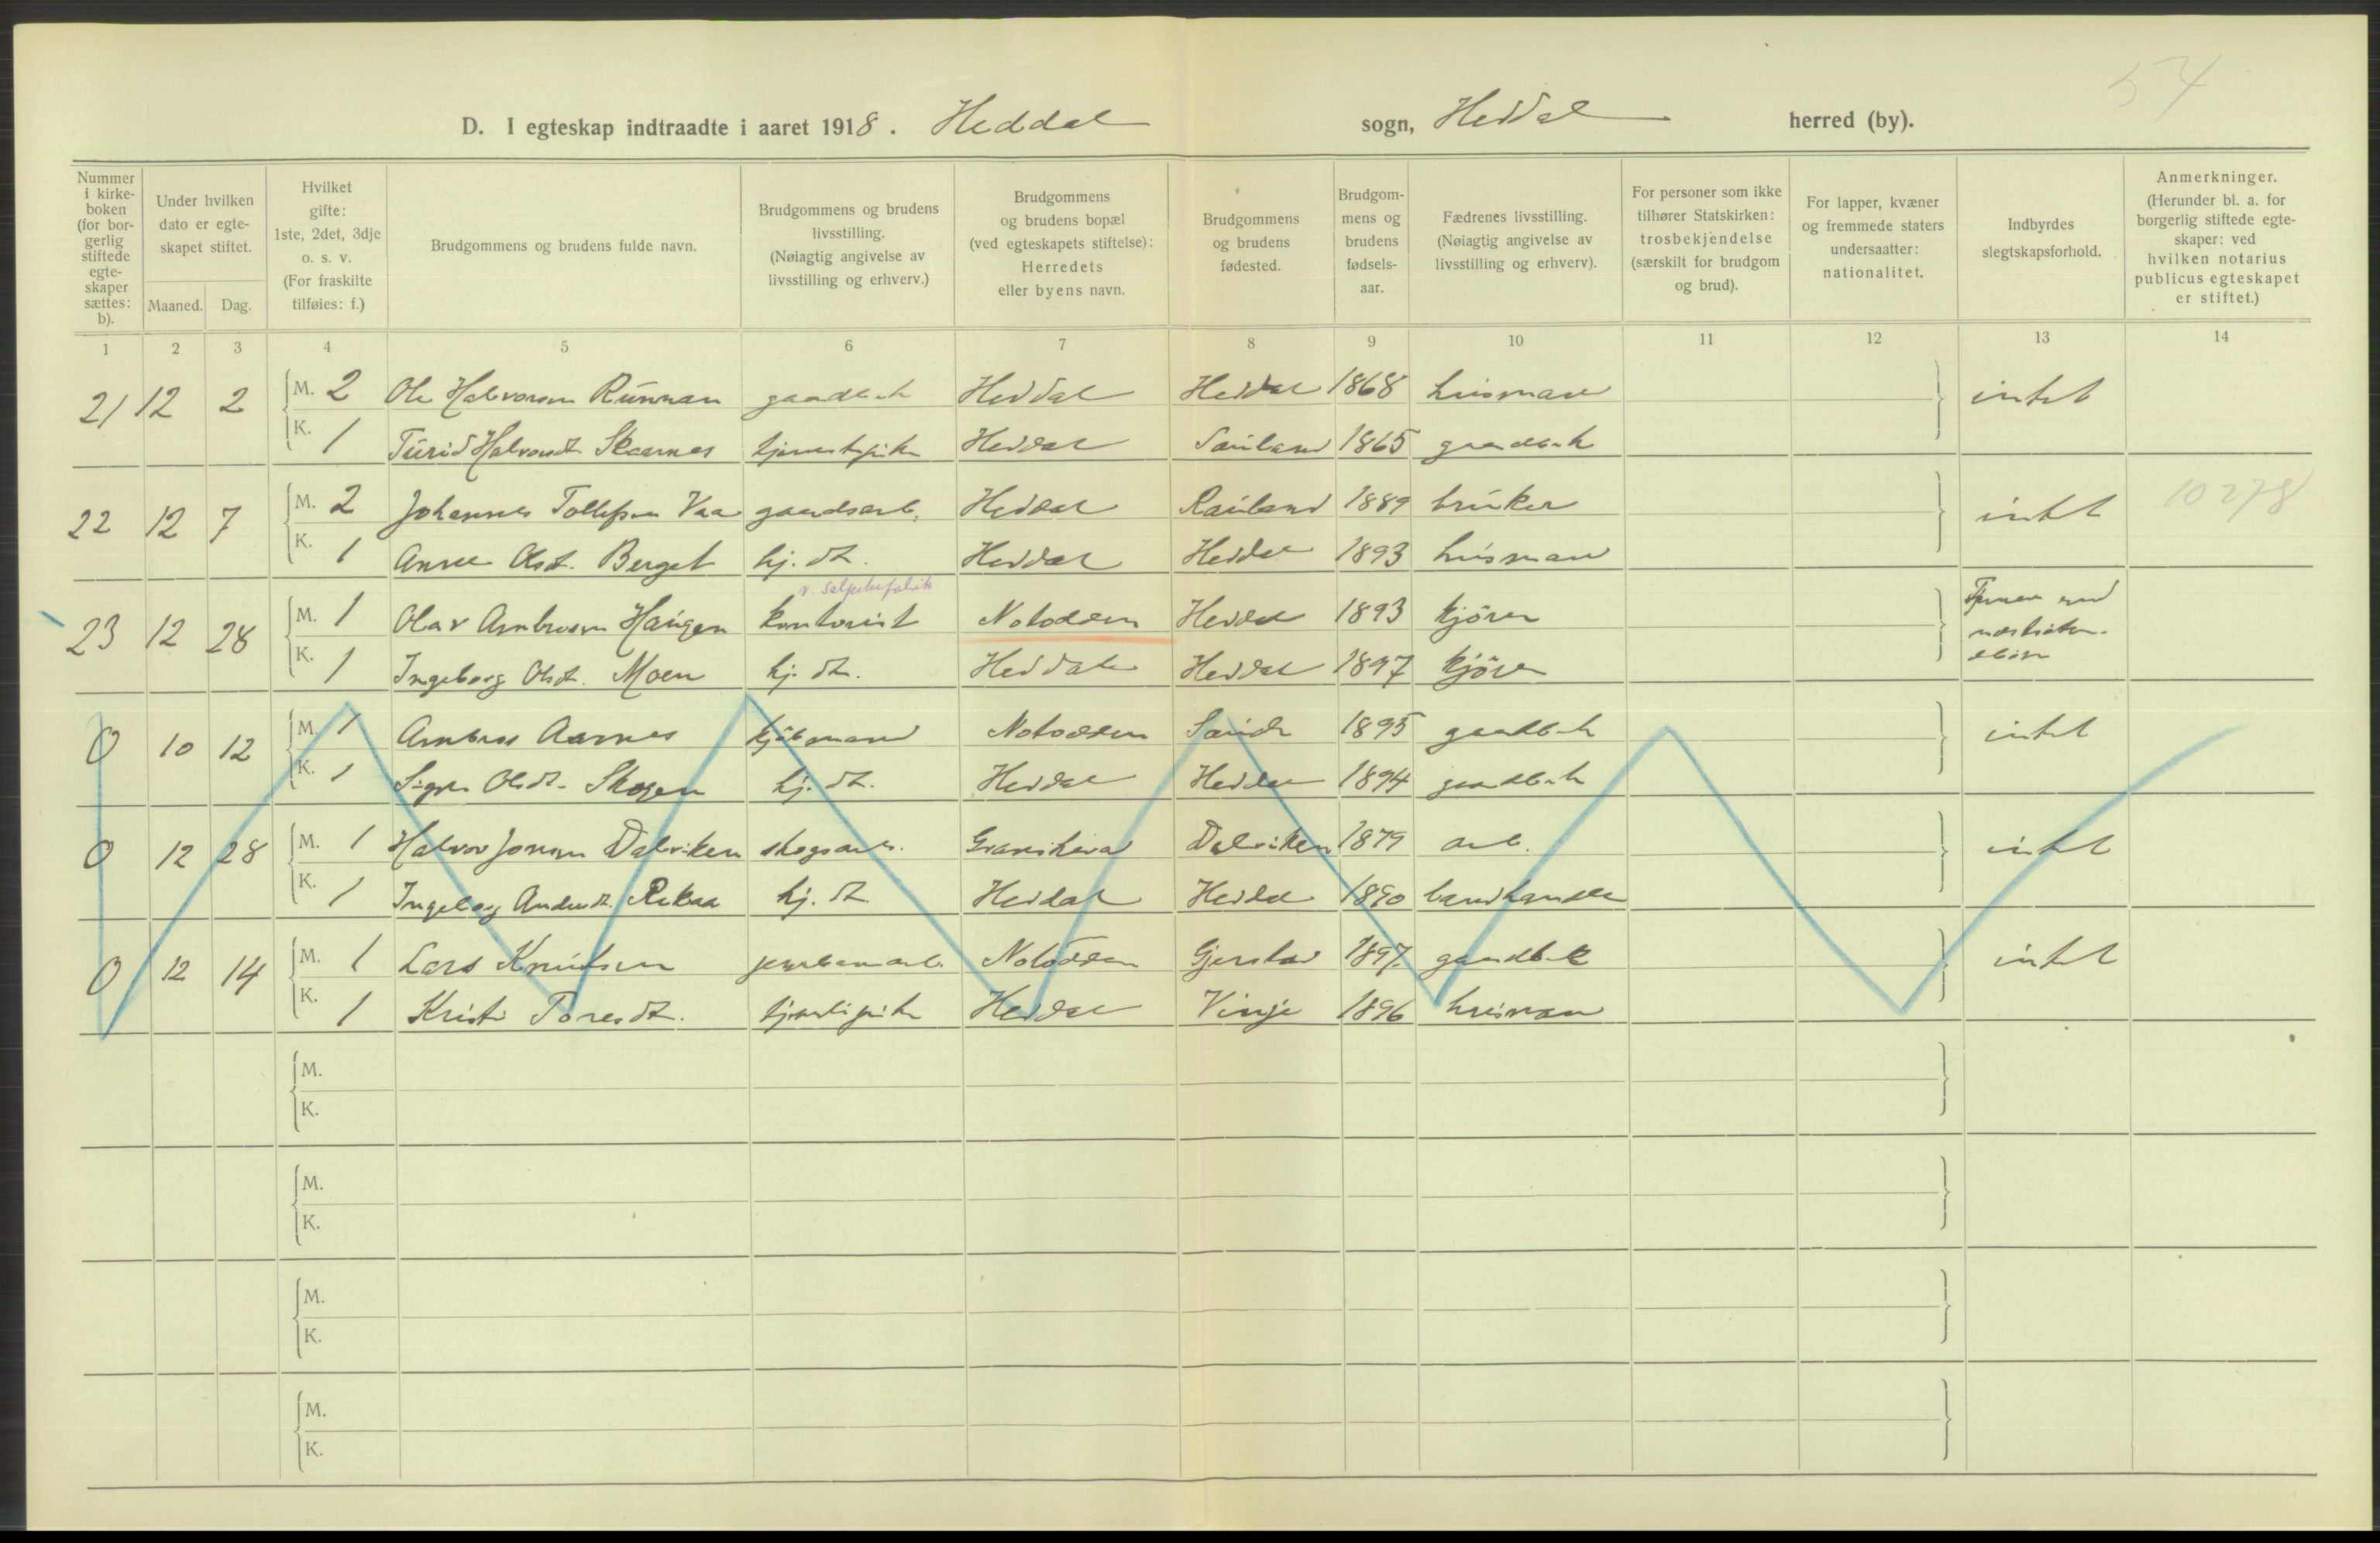 54
D. I egteskap indtraadte i aaret 1918. Heddal sogn, Heddal herred (by).
Nummer i kirke-boken (for bor-gerlig stiftede egte-skaper sættes: b).
Under hvilken dato er egte-skapet stiftet.
Maaned. Dag.
Hvilket gifte: 1ste, 2det, 3dje o. s. v. (For fraskilte tilføies: f.)
Brudgommens og brudens fulde navn.
Brudgommens og brudens livsstilling. (Nøiagtig angivelse av livsstilling og erhverv.)
Brudgommens og brudens bopæl (ved egteskapets stiftelse): Herredets eller byens navn.
Brudgommens og brudens fødested.
Brudgom-mens og brudens fødsels-aar.
Fædrenes livsstilling. (Nøiagtig angivelse av livsstilling og erhverv).
For personer som ikke tilhører Statskirken: trosbekjendelse (særskilt for brudgom og brud).
For lapper, kvæner og fremmede staters undersaatter: nationalitet.
Indbyrdes slegtskapsforhold.
Anmerkninger. (Herunder bl. a. for borgerlig stiftede egte-skaper: ved hvilken notarius publicus egteskapet er stiftet.)
1 2 3 4 5 6 7 8 9 10 11 12 13 14
21 12 2 M. 2 Ole Halvorsen Rünnan gaardbr Heddal Heddal 1868 husmann intet
K. 1 Turid Halvorsdt. Skaarnes tjenestepike Heddal Sauland 1865 gaardbr
22 12 7 M. 2 Johannes Tollefsen Vaa gaardsarb. Heddal Rauland 1889 bruker intet 10278
K. 1 Anne Olsdt. Berget hj. dt. Heddal Heddal 1893 husmann
v. salpeterfabrik
23 12 28 M. 1 Olav Ambrosen Haugen kontorist Notodden Heddal 1893 kjører
K. 1 Ingeborg Olsdt. Moen hj. dt. Heddal Heddal 1897 kjører
0 10 12 M. 1 Ambros Aarnes kjøbmann Notodden 1895 gaardbr intet
K. 1 Signe Olsdt. Skogen hj. dt. Heddal Heddal 1894 gaardbr
0 12 28 M. 1 Halvor Jonsen Dalviken skogsarb. Gransherad Dalviken 1879 arb. intet
K. 1 Ingeborg Andersdt. hj. dt. Heddal Heddal 1890 landhandler
0 12 14 M. 1 Lars Knutsen Notodden Gjerstad 1897 gaardbr intet
K. 1 Kristi Toresdt. tjenestepike Heddal Vinje 1896 husmann
M.
K.
M.
K.
M.
K.
M.
K.